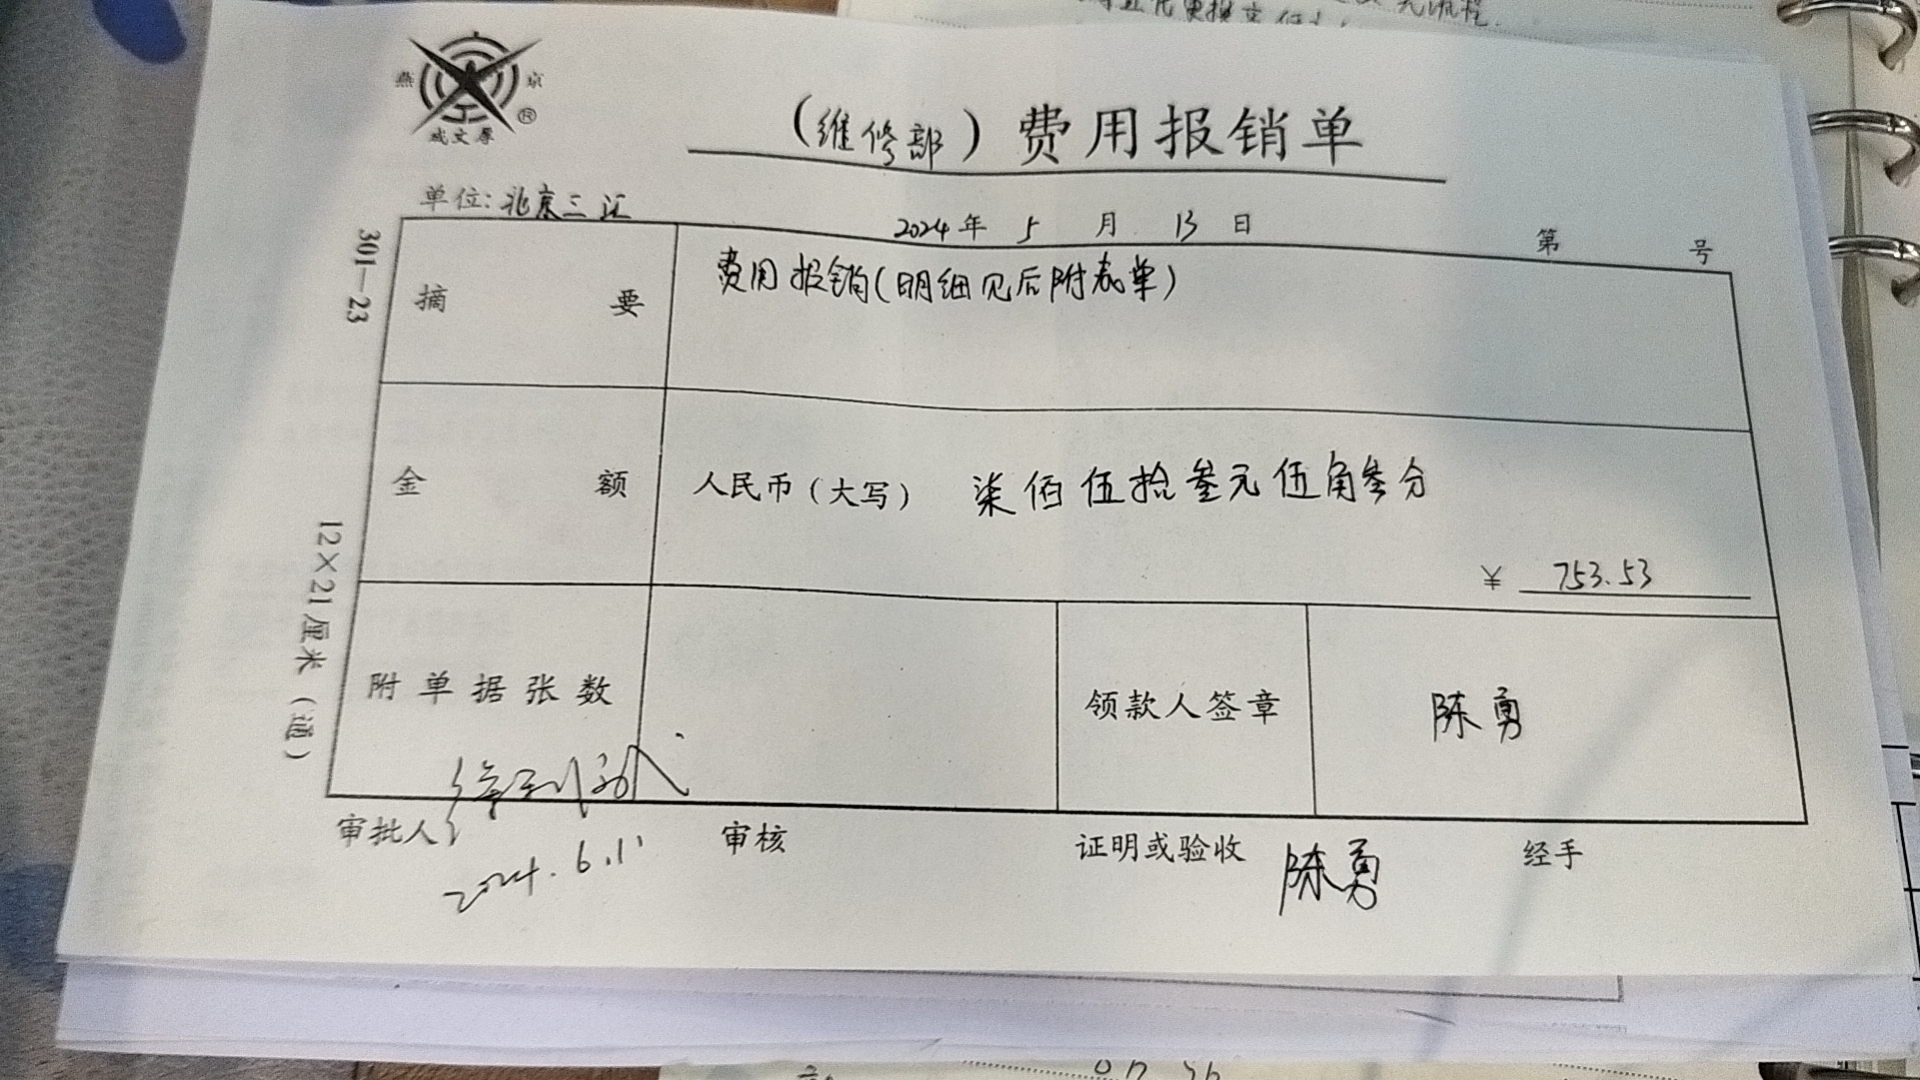 燕 京
®
成文厚
(维修部)费用报销单
单位:北京三江
2024年 5 月 13 日
第 号
301—23
12×21厘米(通)
摘 要
费用报销(明细见后附表单)
金 额
人民币(大写) 柒佰伍拾叁元伍角叁分
¥ 753.53
附单据张数
领款人签章
陈勇
审批人
2024.6.11
审核
证明或验收 陈勇
经手